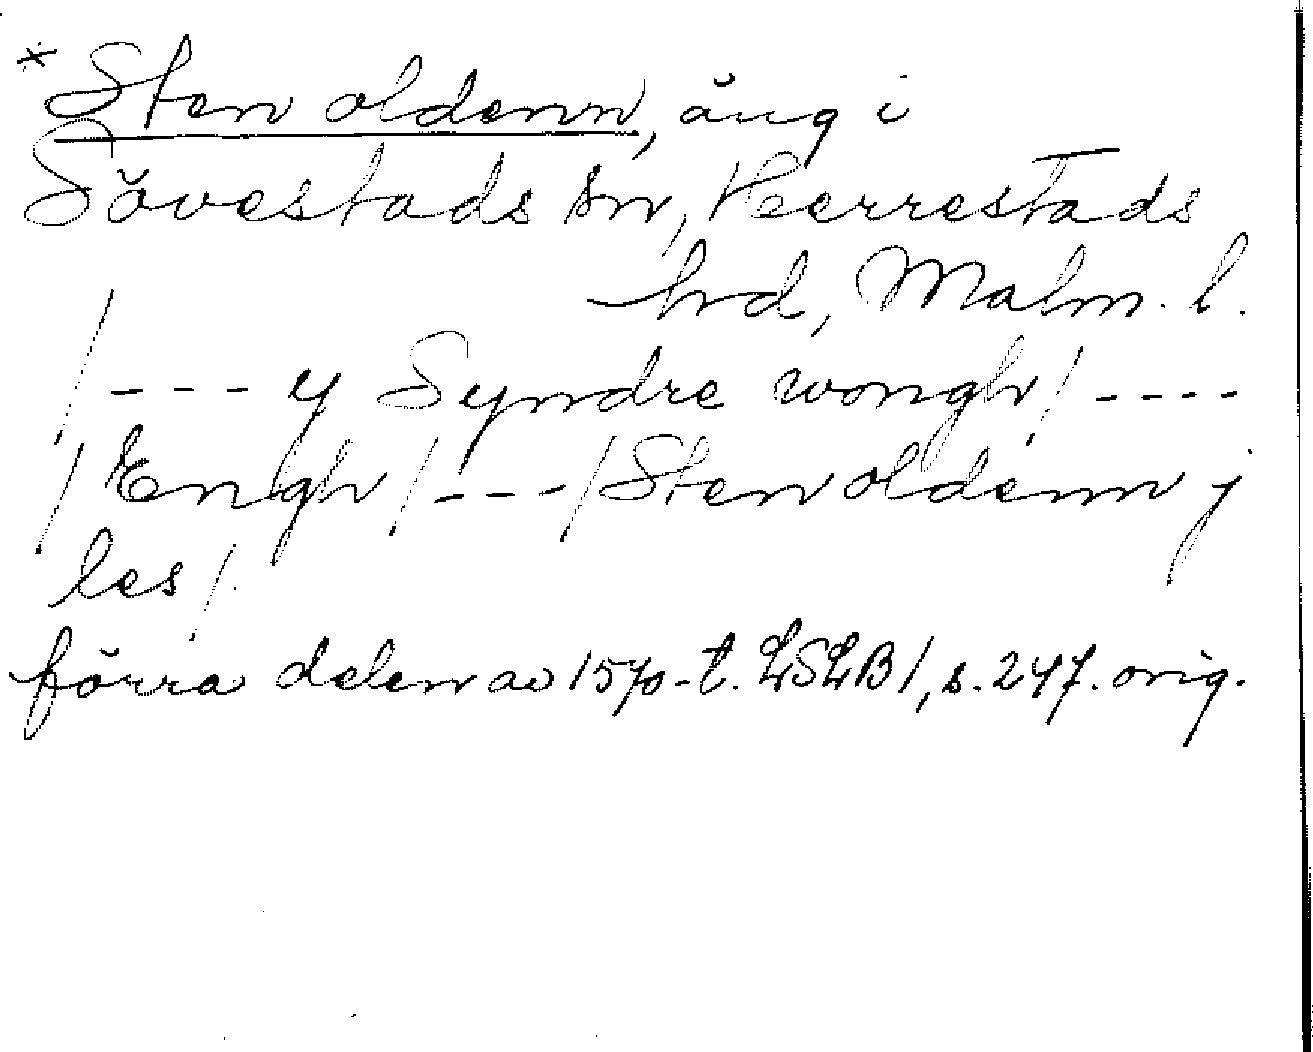 * Sten oldenn, äng i
Sövestads sn, Herrestads
hd, Malm. l.
/ - - - y Syndre wongh / - - - -
/ Engh / - - - / Sten oldenn j
les /.
förra delen av 1570-t. LSLB 1, s. 247. orig.